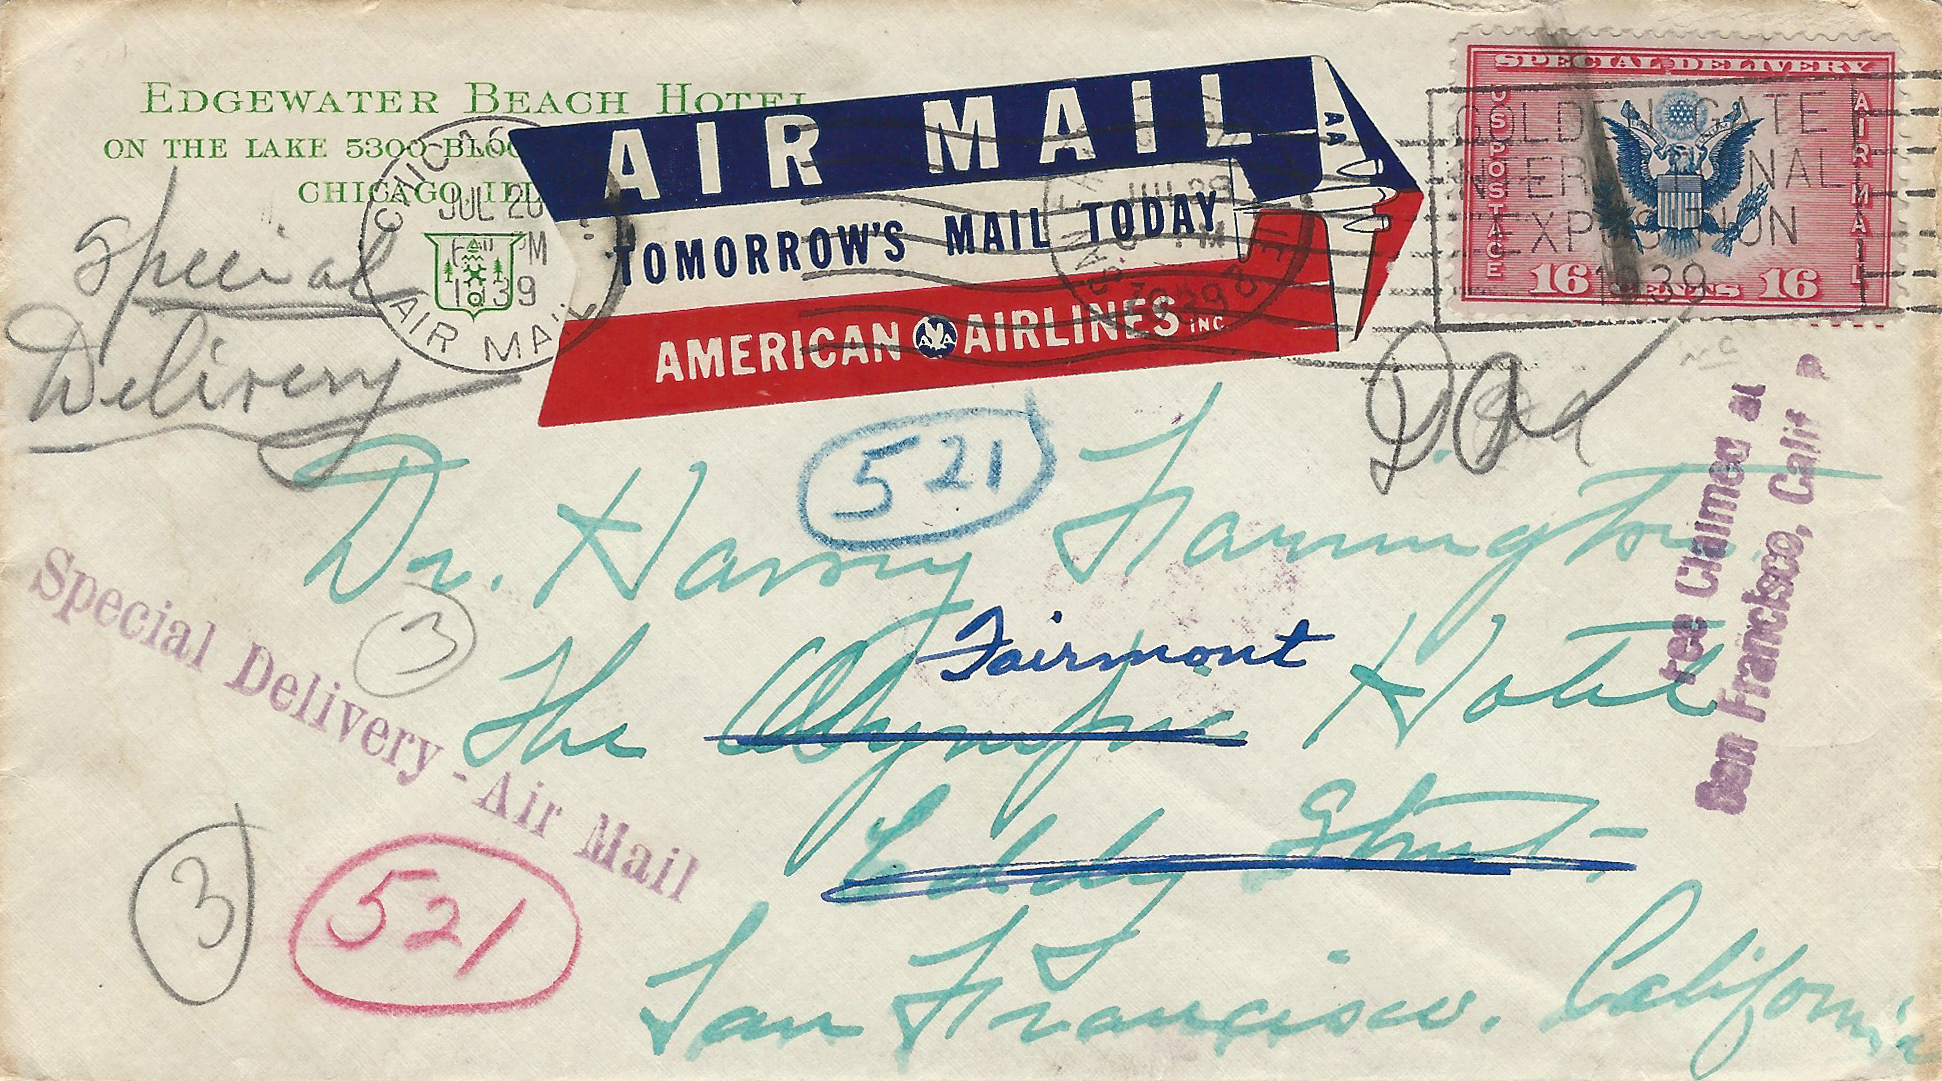 EDGEWATER BEACH HOTEL
ON THE LAKE 5300 BLOC
CHICAGO, ILL
Special
Delivery
CHICAGO
JUL 20
PM
1939
AIR MAIL
AIR MAIL
AA
TOMORROW'S MAIL TODAY
AMERICAN AA AIRLINES INC
JUL 28
PM
1939
SPECIAL DELIVERY
U.S. POSTAGE
AIR MAIL
16 CENTS 16
GOLDEN GATE
INTERNATIONAL
EXPOSITION
1939
521
Dr. Harry Farrington
3
Fairmont
The Olympic Hotel
Eddy Street
San Francisco. California
Special Delivery - Air Mail
3
521
fee Claimed at
San Francisco, Calif